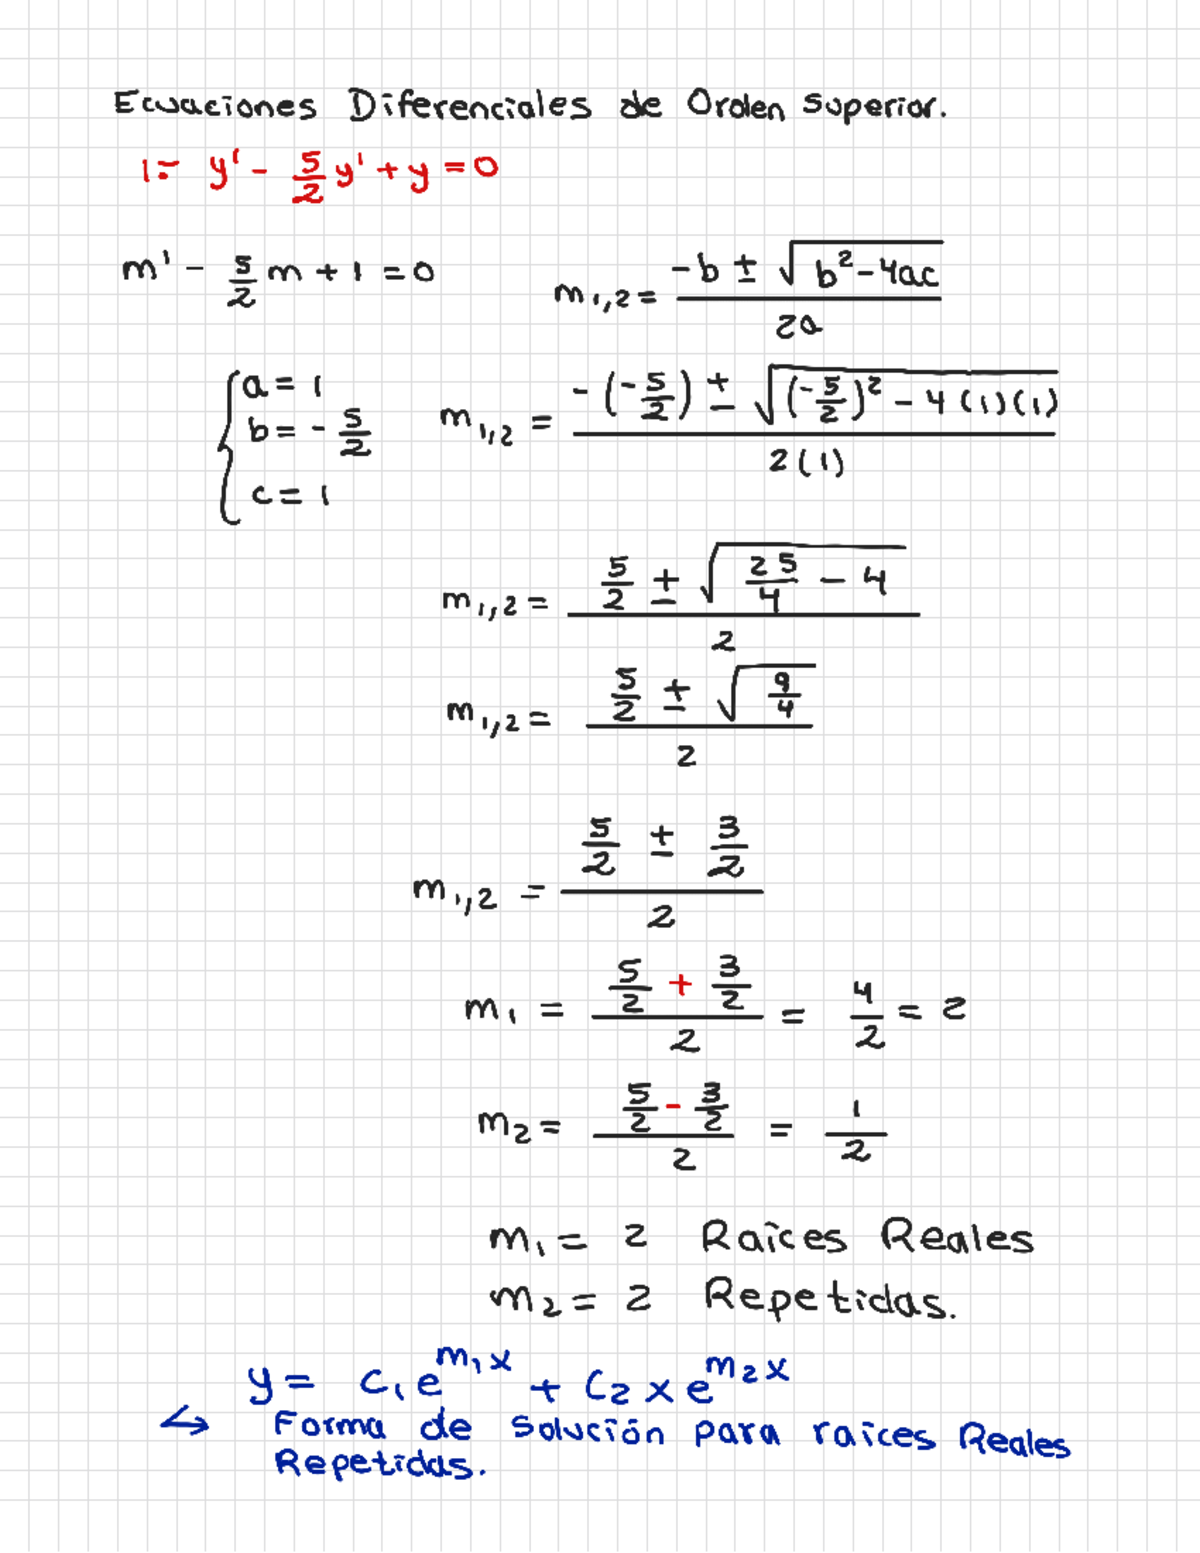 Ecuaciones Diferenciales de Orden Superior.
1:- y' - 5/2 y' + y = 0
m' - 5/2 m + 1 = 0
m1,2 = (-b ± √(b² - 4ac)) / 2a
{ a = 1
b = - 5/2
c = 1
m1,2 = (-(-5/2) ± √((-5/2)² - 4(1)(1))) / 2(1)
m1,2 = (5/2 ± √(25/4 - 4)) / 2
m1,2 = (5/2 ± √(9/4)) / 2
m1,2 = (5/2 ± 3/2) / 2
m1 = (5/2 + 3/2) / 2 = 4/2 = 2
m2 = (5/2 - 3/2) / 2 = 1/2
m1 = 2 Raíces Reales
m2 = 2 Repetidas.
y = c1 e^(m1x) + c2 x e^(m2x)
↳ Forma de solución para raíces Reales
Repetidas.